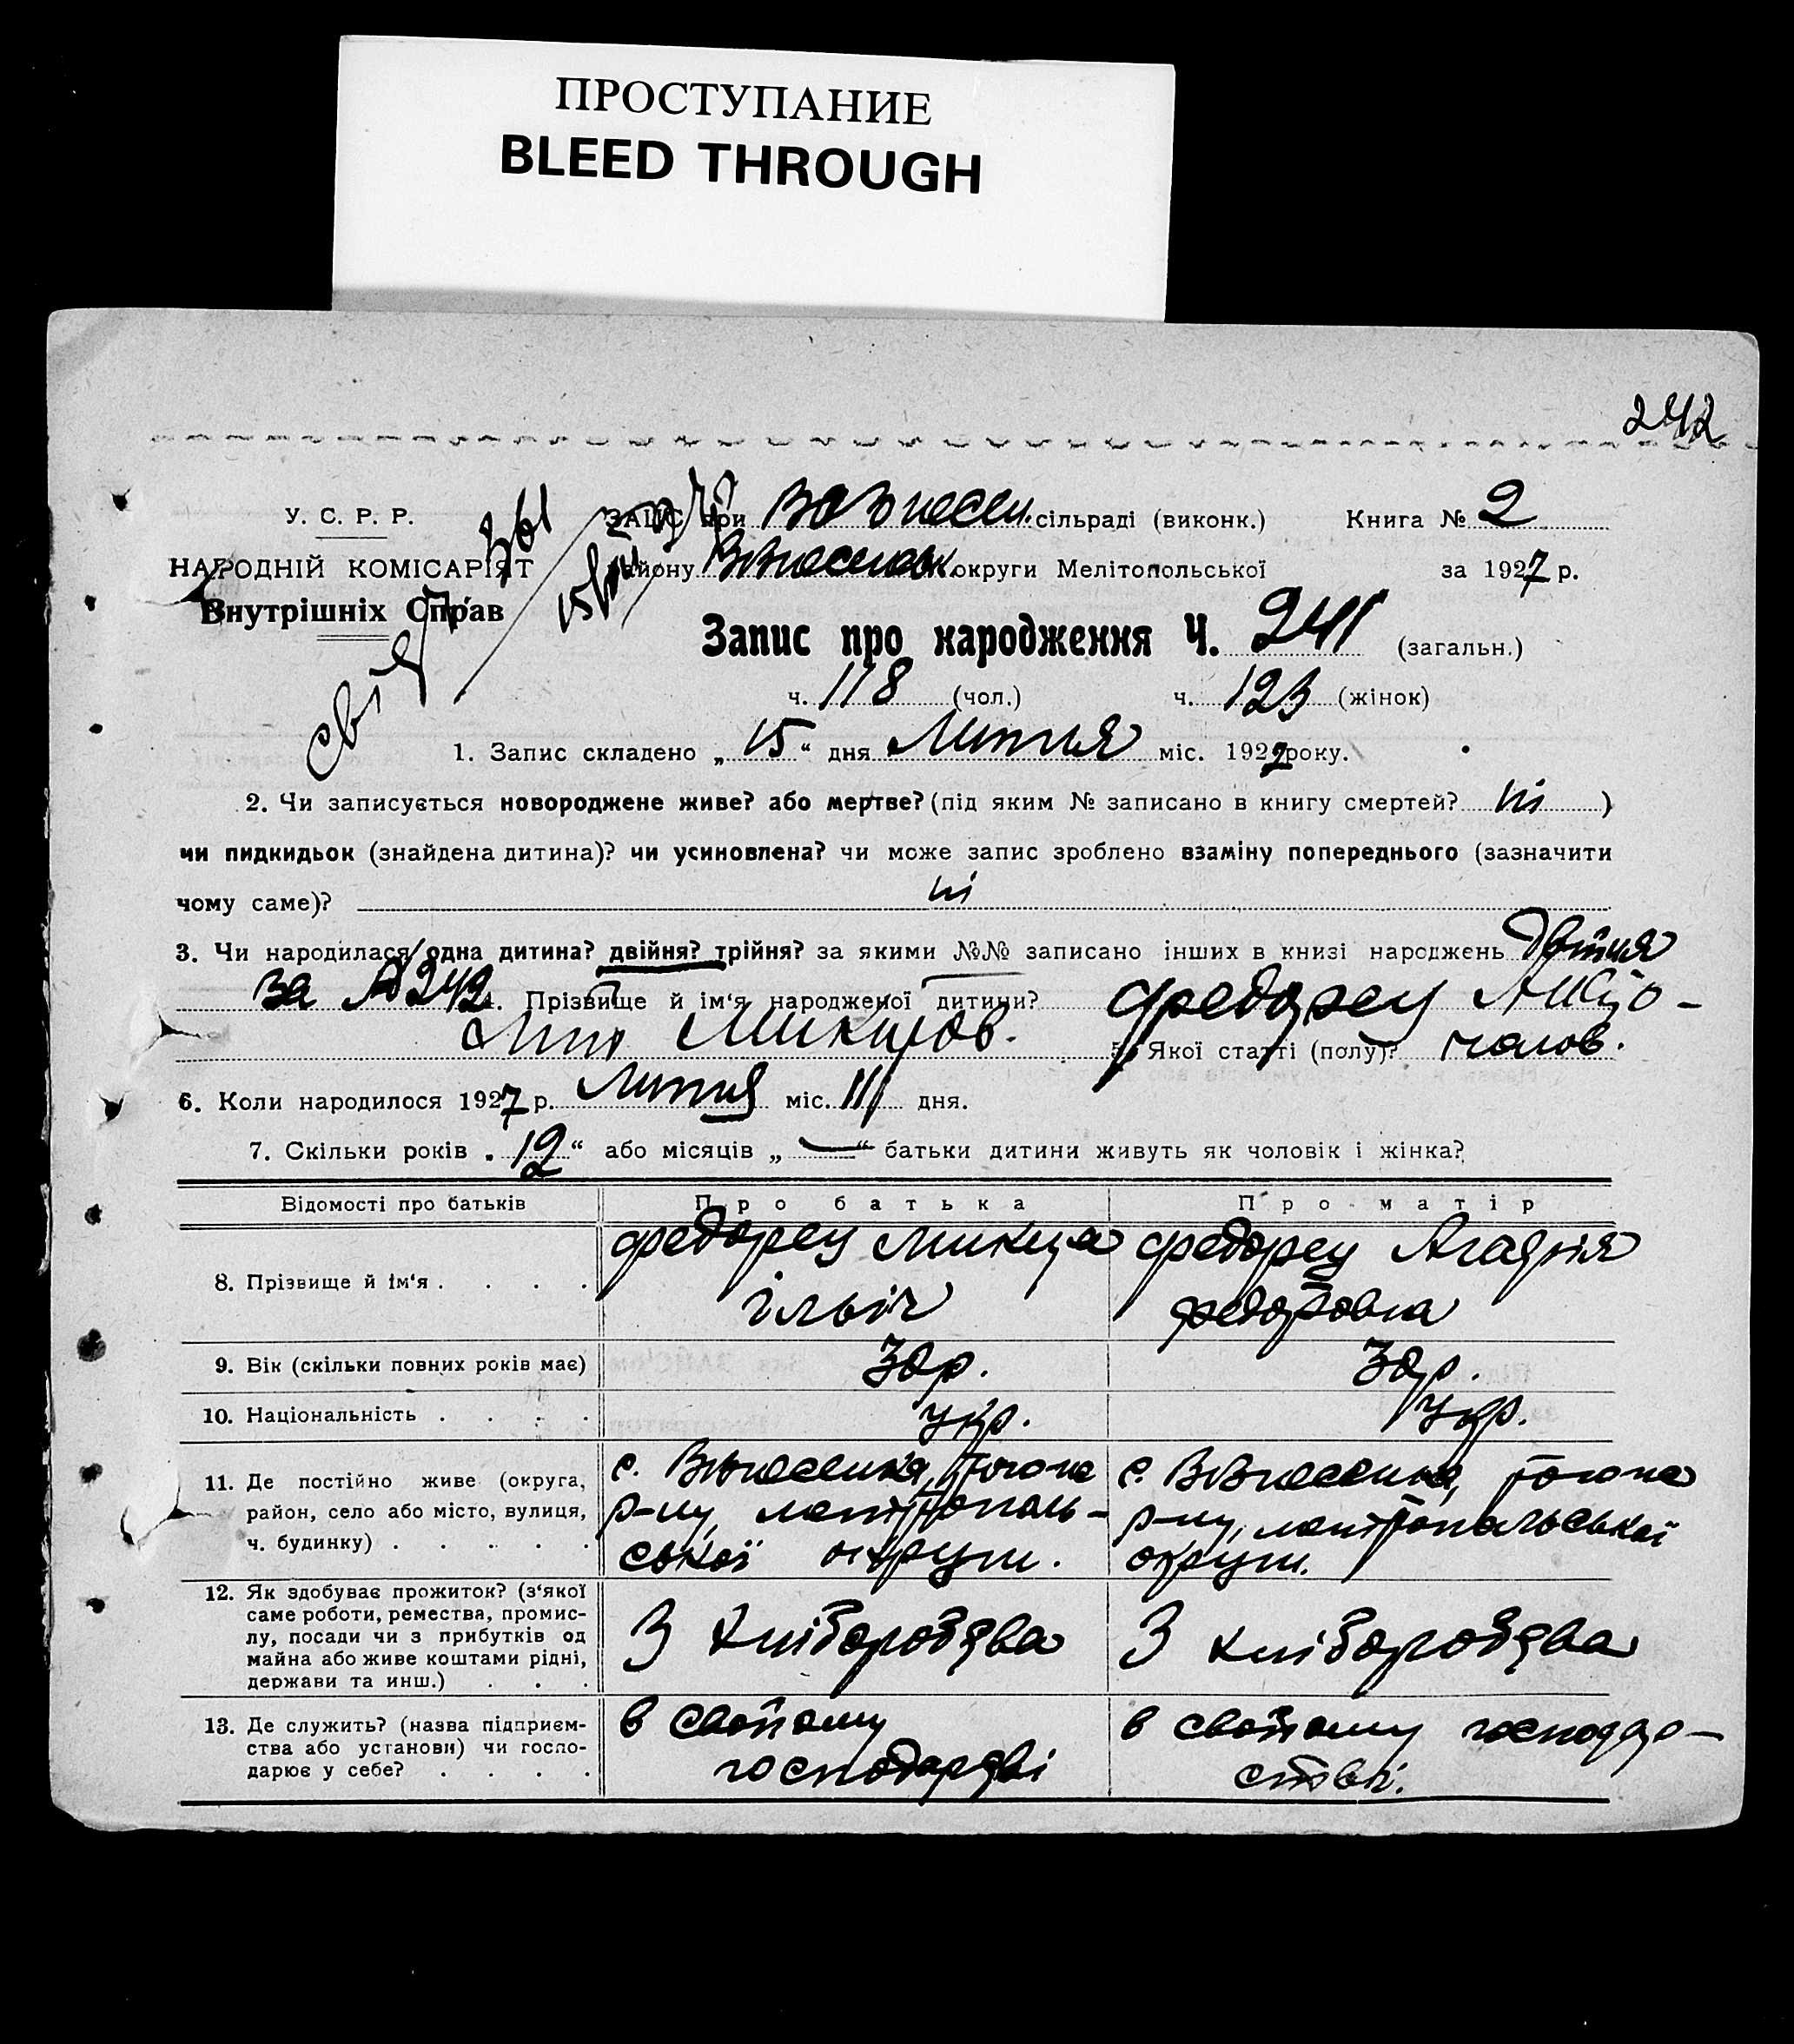 ПРОСТУПАНИЕ
BLEED THROUGH
242
У. С. Р. Р.
НАРОДНІЙ КОМІСАРІЯТ
Внутрішніх Справ
ЗАПИС при Вознесен. сільраді (виконк.) Книга № 2
району Вознесенськ. округи Мелітопольської за 1927 р.
Запис про народження Ч. 241 (загальн.)
ч. 118 (чол.) ч. 123 (жінок)
1. Запис складено „ 15 “ дня Липня міс. 1927 року.
2. Чи записується новороджене живе? або мертве? (під яким № записано в книгу смертей? ні )
чи пидкидьок (знайдена дитина)? чи усиновлена? чи може запис зроблено взаміну попереднього (зазначити
чому саме)? ні
3. Чи народилася одна дитина? двійня? трійня? за якими №№ записано інших в книзі народжень двійня
за № 242. Прізвище й ім‘я народженої дитини? Федорец
Микитов. 5. Якої статті (полу)? чолов.
6. Коли народилося 1927 р. Липня міс. 11 дня.
7. Скільки років „ 12 “ або місяців „ — “ батьки дитини живуть як чоловік і жінка?
Відомості про батьків Про батька Про матір
8. Прізвище й ім‘я . . . . Федорец Микита Федорец Агафія
Ільіч Федоровна
9. Вік (скільки повних років має) 30р. 30р.
10. Національність . . . . укр. укр.
11. Де постійно живе (округа, район, село або місто, вулиця, ч. будинку) . . . . .
с. Вознесенка, того не
р-ну, мелітополь-
ської округи.
с. Вознесенка, того не
р-ну, мелітопольської
округи.
12. Як здобуває прожиток? (з‘якої саме роботи, ремества, промис-
лу, посади чи з прибутків од
майна або живе коштами рідні,
держави та инш.) . . .
З хліборобства З хліборобства
13. Де служить? (назва підприєм-
ства або установи) чи госпо-
дарює у себе? . . . .
в своїому
господарстві
в своїому господар-
стві.